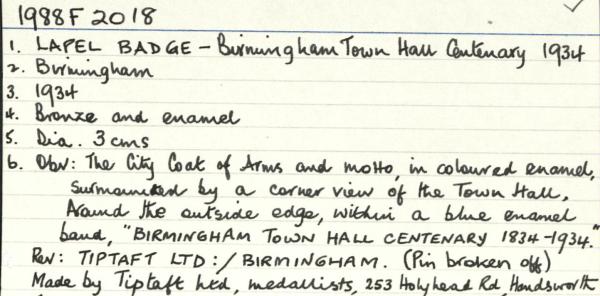 1988F 2018
1. LAPEL BADGE - Birmingham Town Hall Centenary 1934
2. Birmingham
3. 1934
4. Bronze and enamel
5. Dia. 3 cms
6. Obv: The City Coat of Arms and motto, in coloured enamel,
surmounted by a corner view of the Town Hall,
Around the outside edge, within a blue enamel
band, "BIRMINGHAM TOWN HALL CENTENARY 1834-1934."
Rev: TIPTAFT LTD:/BIRMINGHAM. (Pin broken off)
Made by Tiptaft Ltd, medallists, 253 Holyhead Rd, Handsworth